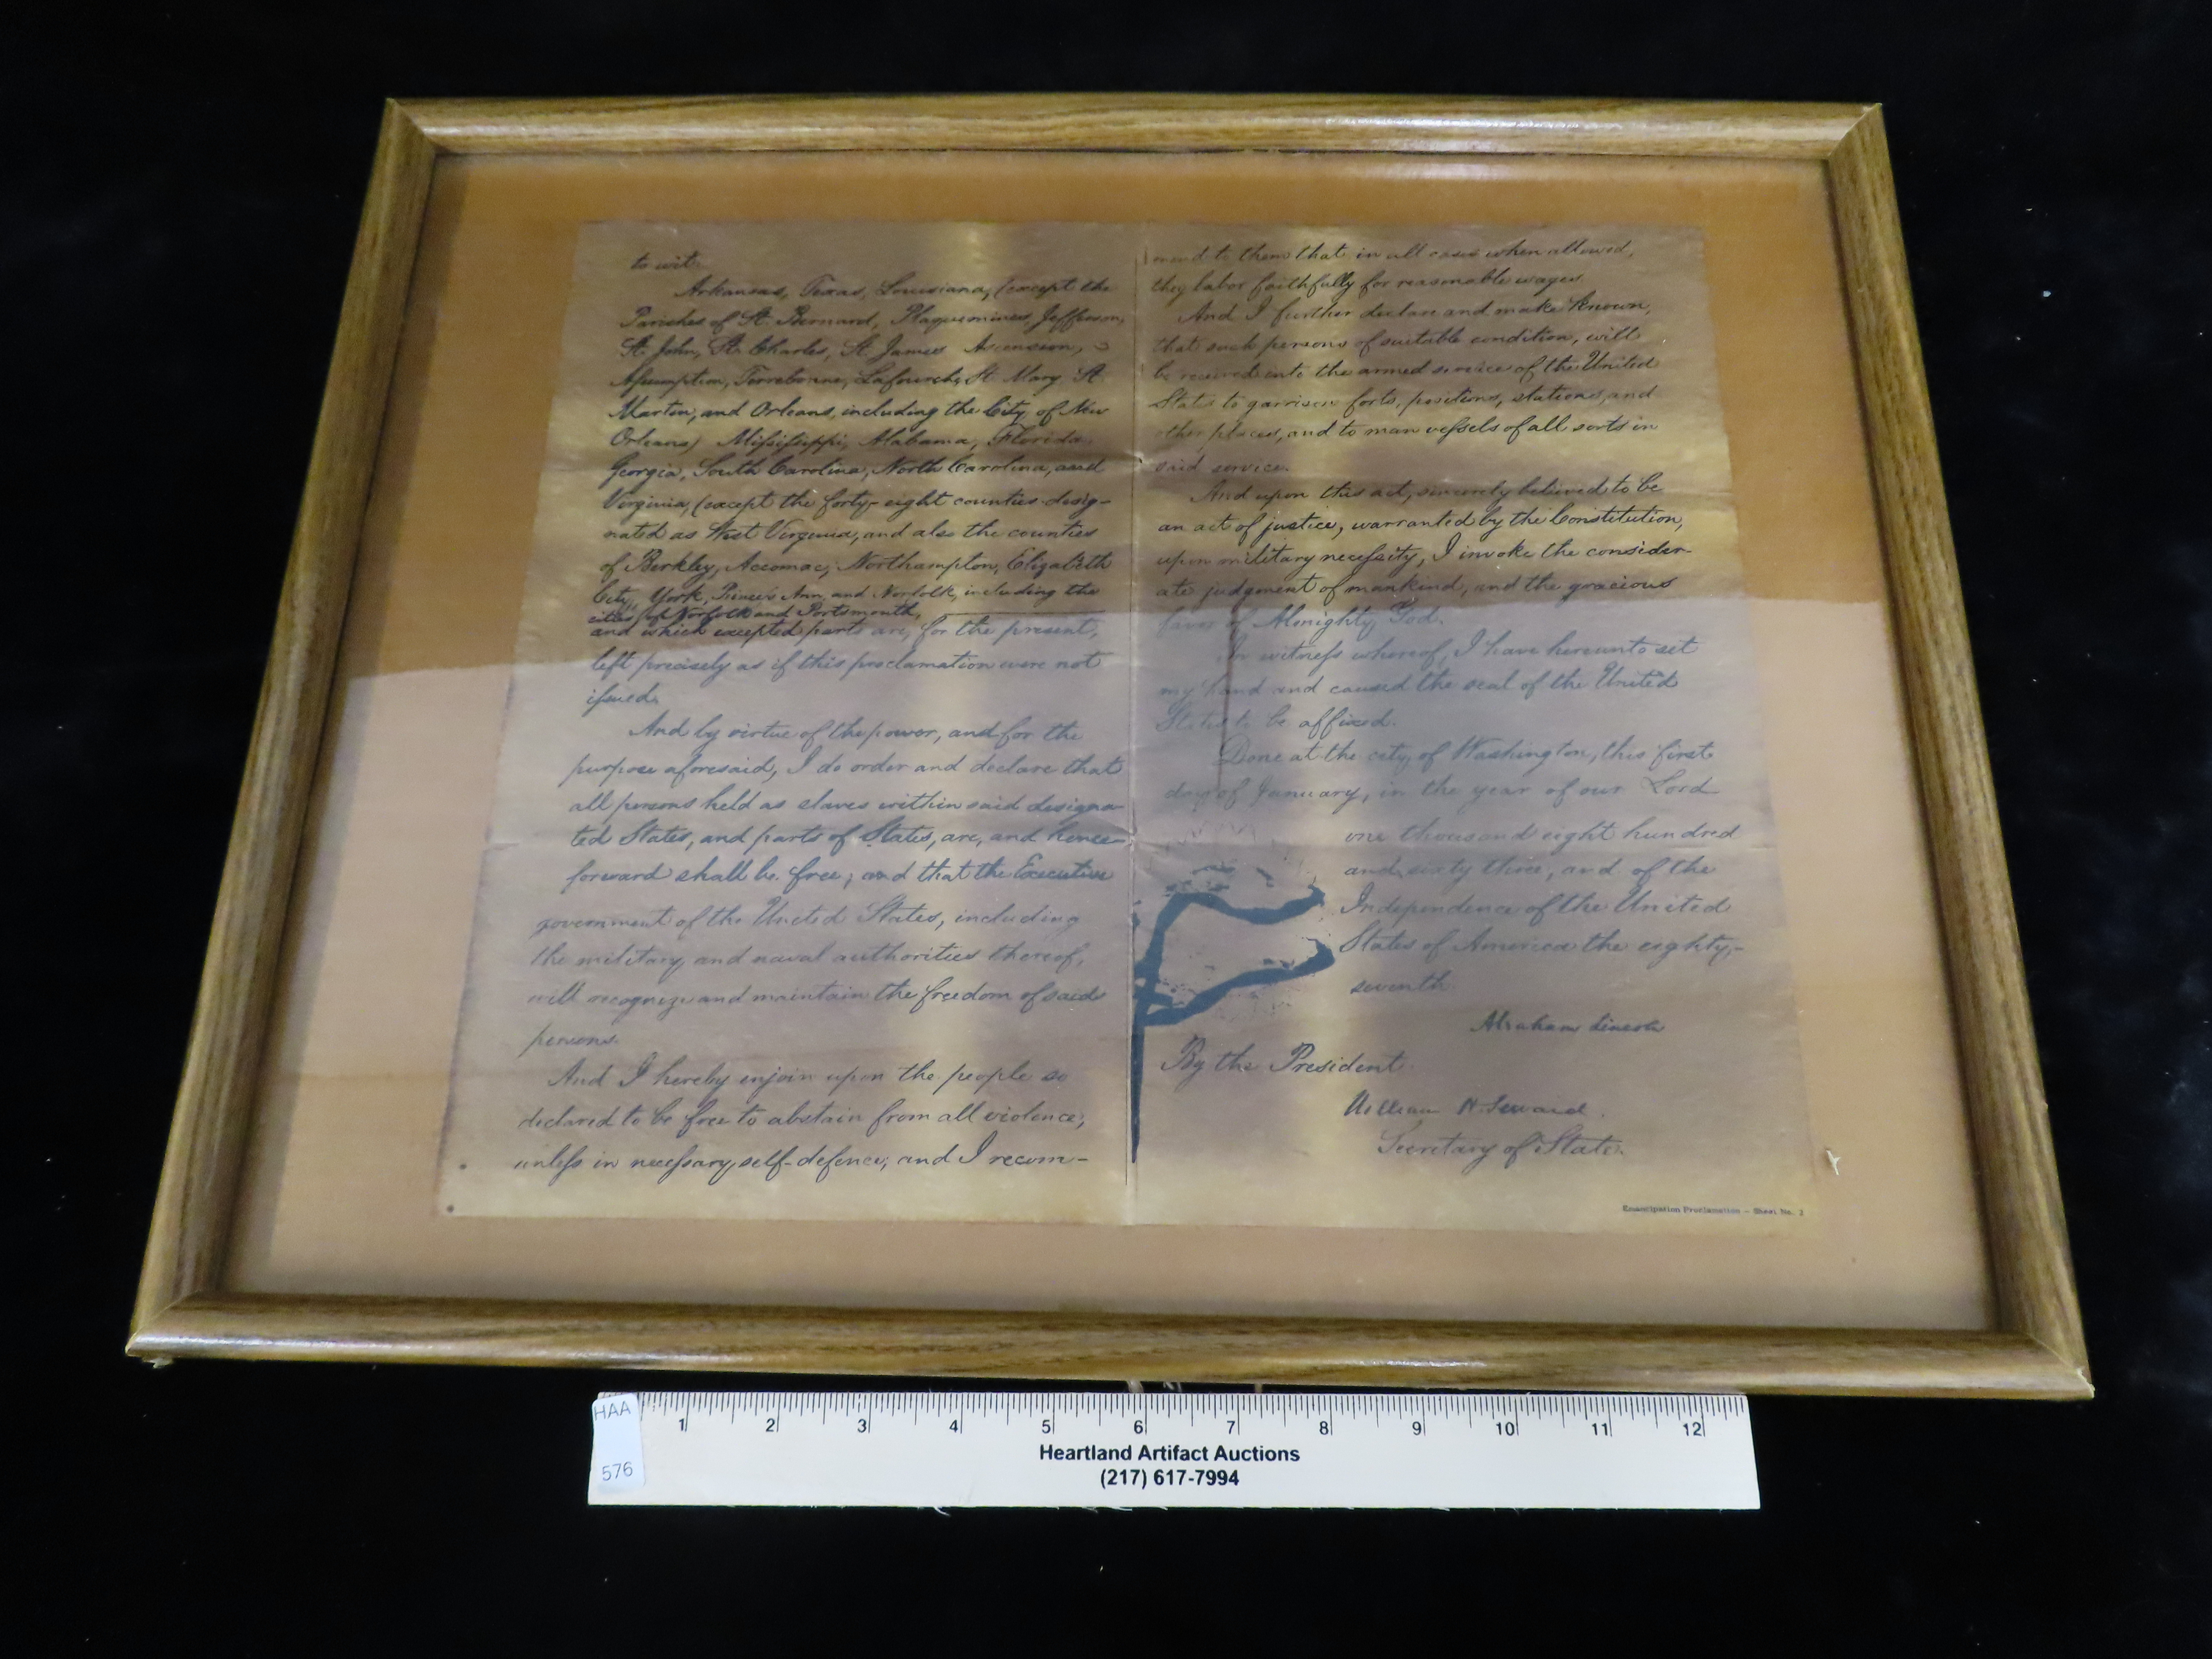 to wit.
Arkansas, Texas, Louisiana, (except the
Parishes of St. Bernard, Plaquemines, Jefferson,
St. John, St. Charles, St. James Ascension,
Assumption, Terrebonne, Lafourche, St. Mary, St.
Martin, and Orleans, including the City of New
Orleans) Mississippi, Alabama, Florida,
Georgia, South Carolina, North Carolina, and
Virginia, (except the forty-eight counties desig-
nated as West Virginia, and also the counties
of Berkley, Accomac, Northampton, Elizabeth
City, York, Princess Ann, and Norfolk, including the
cities of Norfolk and Portsmouth,
and which excepted parts are, for the present,
left precisely as if this proclamation were not
issued.
And by virtue of the power, and for the
purpose aforesaid, I do order and declare that
all persons held as slaves within said designa-
ted States, and parts of States, are, and hence-
forward shall be free; and that the Executive
government of the United States, including
the military and naval authorities thereof,
will recognize and maintain the freedom of said
persons.
And I hereby enjoin upon the people so
declared to be free to abstain from all violence,
unless in necessary self-defence; and I recom-
mend to them that in all cases when allowed,
they labor faithfully for reasonable wages.
And I further declare and make known,
that such persons of suitable condition, will
be received into the armed service of the United
States to garrison forts, positions, stations, and
other places, and to man vessels of all sorts in
said service.
And upon this act, sincerely believed to be
an act of justice, warranted by the Constitution,
upon military necessity, I invoke the consider-
ate judgment of mankind, and the gracious
favor of Almighty God.
In witness whereof, I have hereunto set
my hand and caused the seal of the United
States to be affixed.
Done at the city of Washington, this first
day of January, in the year of our Lord
one thousand eight hundred
and sixty three, and of the
Independence of the United
States of America the eighty-
seventh.
Abraham Lincoln
By the President
William H. Seward.
Secretary of State.
Emancipation Proclamation - Sheet No. 2
HAA
576
1 2 3 4 5 6 7 8 9 10 11 12
Heartland Artifact Auctions
(217) 617-7994